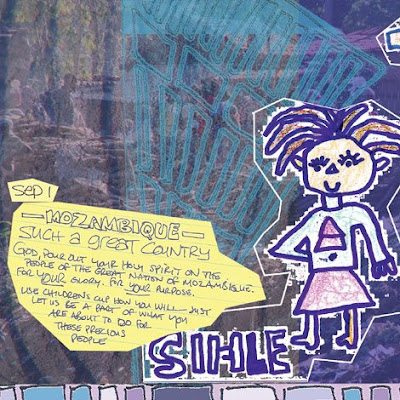 Sep 1
MOZAMBIQUE
SUCH a great COUNTRY
GOD, POUR OUT YOUR HOLY SPIRIT ON THE
PEOPLE OF THE GREAT NATION OF MOZAMBIQUE.
FOR YOUR GLORY. FOR YOUR PURPOSE.
USE CHILDRENS CUP HOW YOU WILL - JUST
LET US BE A PART OF WHAT YOU
ARE ABOUT TO DO FOR
THESE PRECIOUS
PEOPLE
SIHLE